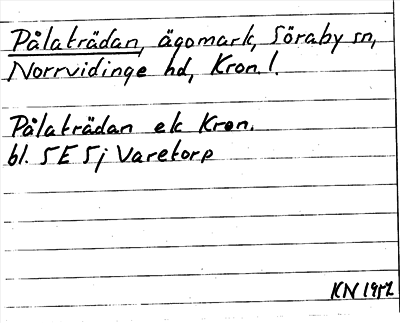 Pålaträdan, ägomark, Söraby sn,
Norrvidinge hd, Kron. l.
Pålaträdan ek Kron.
bl. 5E 5j Varetorp
KN 1952